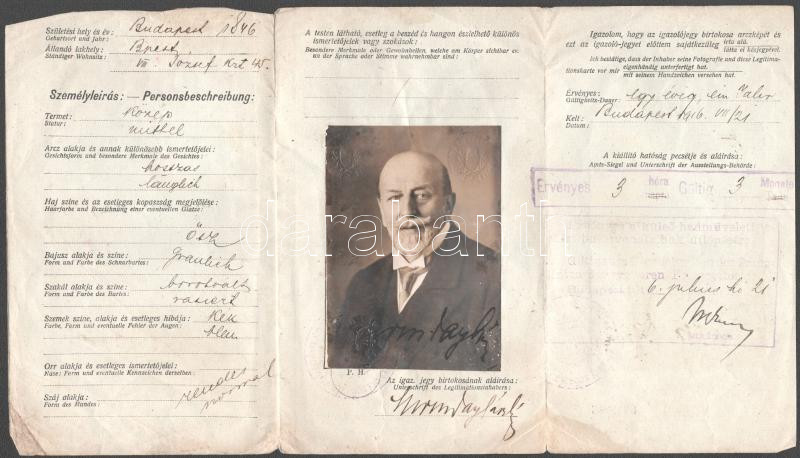 Születési hely és év: Budapest 1846
Geburtsort und Jahr:
Állandó lakhely: Bpest
Ständiger Wohnsitz:
VIII. József krt 45.
Személyleírás: — Personsbeschreibung:
Termet: közép
Statur: mittel
Arcz alakja és annak különösebb ismertetőjelei:
Gesichtsform und besondere Merkmale des Gesichtes:
hosszas
länglich
Haj színe és az esetleges kopaszság megjelölése:
Haarfarbe und Bezeichnung einer eventuellen Glatze:
ősz
Bajusz alakja és színe: graulich
Form und Farbe des Schnurbartes:
Szakál alakja és színe: borotvált
Form und Farbe des Bartes: rasiert
Szemek színe, alakja és esetleges hibája: kék
Farbe, Form und eventuelle Fehler der Augen: blau
Orr alakja és esetleges ismertetőjelei:
Nase: Form und eventuelle Kennzeichen derselben:
rendes
normal
Száj alakja:
Form des Mundes:
A testen látható, esetleg a beszéd és hangon észlelhető különös
ismertetőjelek vagy szokások:
Besondere Merkmale oder Gewohnheiten, welche am Körper sichtbar ev.
an der Sprache oder Stimme wahrnehmbar sind:
darabanth
P. H.
Az igaz. jegy birtokosának aláírása:
Unterschrift des Legitimationsinhabers:
Igazolom, hogy az igazolójegy birtokosa arczképét és
ezt az igazoló-jegyet előttem sajátkezűleg írta alá.
látta el kézjegyével.
Ich bestätige, dass der Inhaber seine Fotografie und diese Legitima-
tionskarte vor mir eigenhändig unterfertigt hat.
mit seinem Handzeichen versehen hat.
Érvényes: egy évig, ein Jahr
Gültigkeits-Dauer:
Kelt: Budapest 1916. VII/21
Datum:
A kiállító hatóság pecsétje és aláírása:
Amts-Siegel und Unterschrift der Ausstellungs-Behörde:
Érvényes 3 hóra Gültig 3 Monate
6. július hó 21